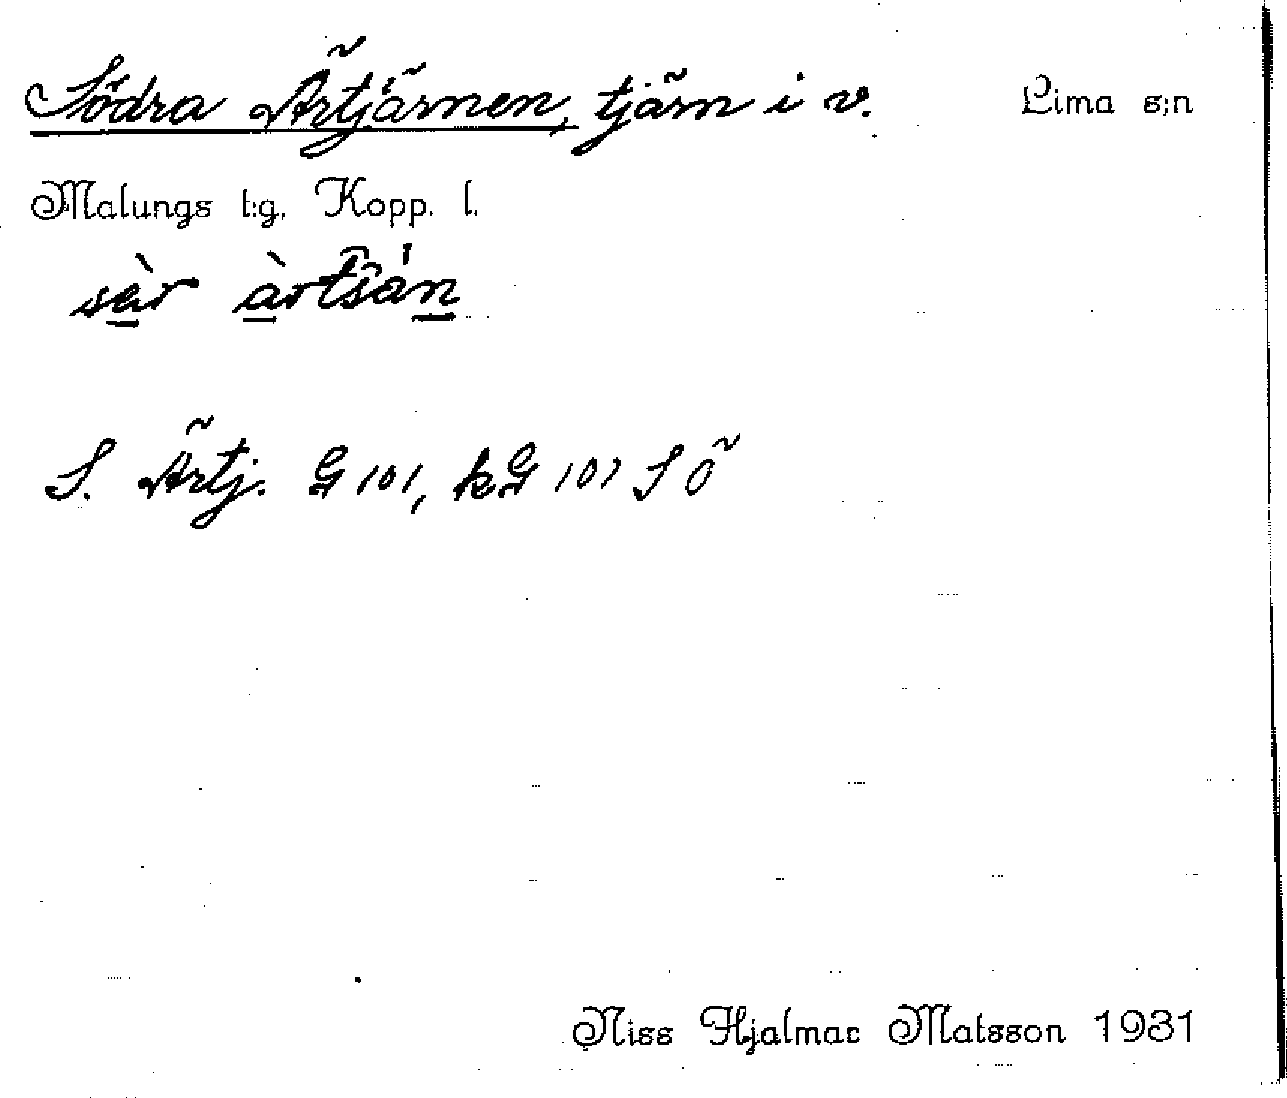 Södra Ärtjärnen, tjärn i v. Lima s:n
Malungs t:g. Kopp. l.
S. Ärtj. G 101, kG 101 S Ö
Niss Hjalmar Matsson 1931